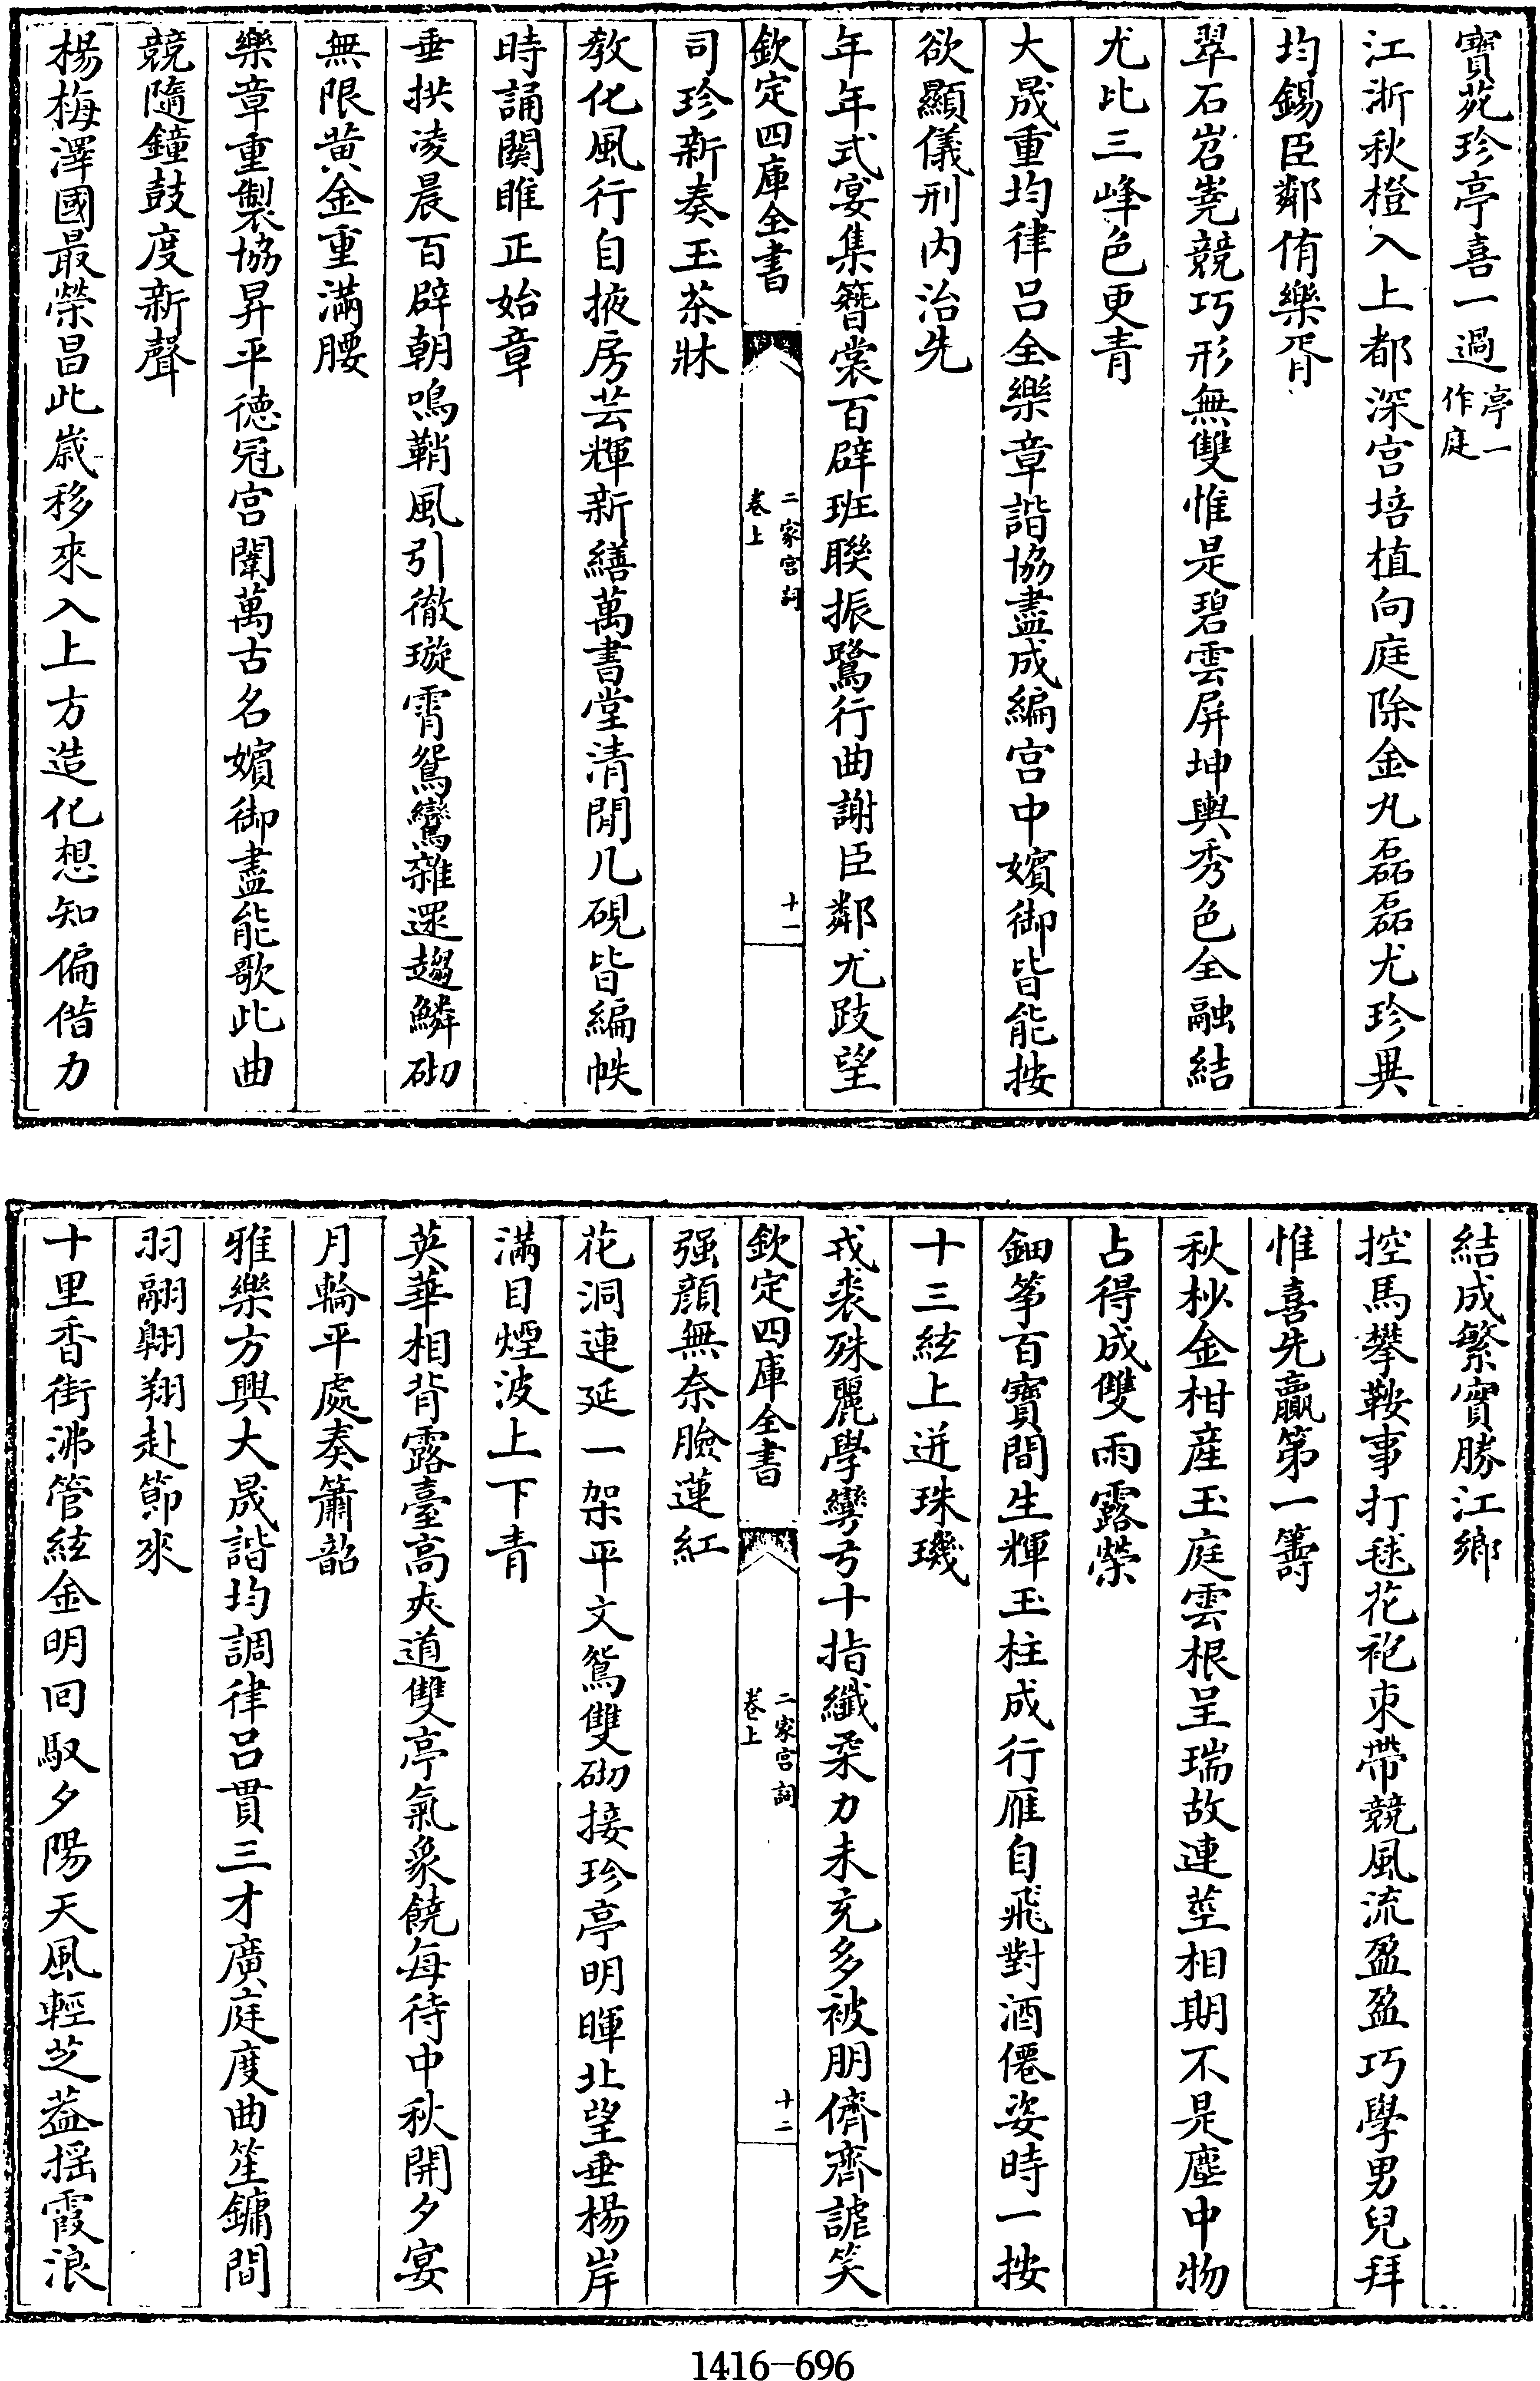 寶苑珍亭喜一過亭一作庭
江浙秋橙入上都深宫培植向庭除金丸磊磊尤珍異
均錫臣鄰侑樂胥
翠石岧嶤競巧形無雙惟是碧雲屏坤輿秀色全融結
尤比三峰色更青
大晟重均律吕全樂章諧協盡成編宫中嬪御皆能按
欲顯儀刑内治先
年年式宴集簪裳百辟班聯振鷺行曲謝臣鄰尤跂望
欽定四庫全書
二家宫詞卷上
十一
司珍新奏玉茶牀
教化風行自掖房芸輝新繕萬書堂清閒几硯皆編帙
時誦關雎正始章
垂拱凌晨百辟朝鳴鞘風引徹璇霄鴛鸞雜遝趨鱗砌
無限黄金重滿腰
樂章重製協昇平德冠宫闈萬古名嬪御盡能歌此曲
競隨鐘鼓度新聲
楊梅澤國最榮昌此歲移來入上方造化想知偏偕力
結成繁實勝江鄉
控馬攀鞍事打毬花袍束帶競風流盈盈巧學男兒拜
惟喜先贏第一籌
秋杪金柑産玉庭雲根呈瑞故連莖相期不是塵中物
占得成雙雨露榮
鈿筝百寶間生輝玉柱成行雁自飛對酒僊姿時一按
十三絃上迸珠璣
戎裘殊麗學彎弓十指纖柔力未充多被朋儕齊謔笑
欽定四庫全書
二家宫詞卷上
十二
强顔無奈臉蓮紅
花洞連延一架平文鴛雙砌接珍亭明暉北望垂楊岸
滿目煙波上下青
英華相背露臺高夾道雙亭氣象饒每待中秋開夕宴
月輪平處奏簫韶
雅樂方興大晟諧均調律吕貫三才廣庭度曲笙鏞間
羽翮翺翔赴節來
十里香街沸管絃金明回馭夕陽天風輕芝葢摇霞浪
1416-696